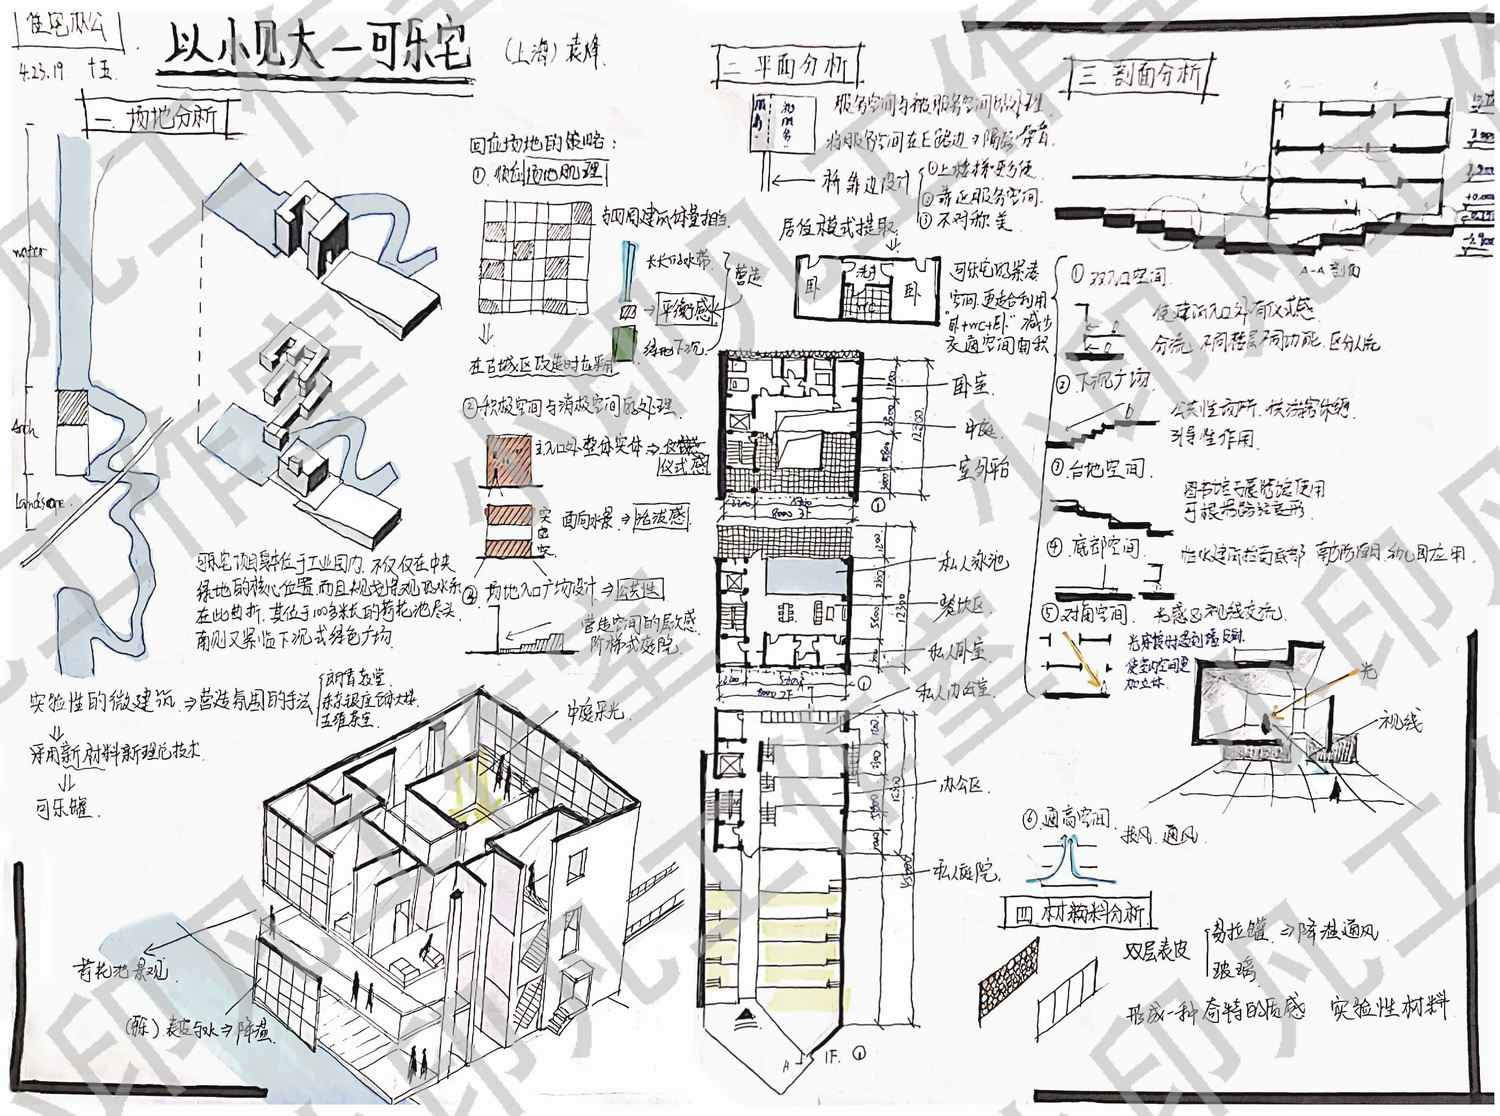 住宅办公
4.23.19. 十五.
以小见大—可乐宅
(上海) 袁烽.
一. 场地分析
water
Arch
Landscape
可乐宅项目身处位于工业园内, 不仅仅在中央
绿地的核心位置, 而且规划景观及水系
在此曲折, 其位于100多米长的荷花池尽头,
南则又紧临下沉式绿色广场.
回应场地的策略:
① 顺应场地肌理
与四周建筑体量相当
长长的水带
营造
平衡感
绿地下沉
在古城区改造时应利用
② 积极空间与消极空间的处理
主入口外整体实体⇒
仪式感
实
实
面向水景⇒活泼感
场地入口广场设计⇒公共性
营造空间的层次感
阶梯式庭院.
实验性的微建筑⇒营造氛围的手法
采用新材料新理念技术.
⇓
可乐罐.
中庭采光
荷花池景观
表皮与水⇒降温
二. 平面分析
服务空间与被服务空间的处理
将服务空间在E路边⇒隔层 降音
桥靠边设计
① 上楼梯更方便
② 靠近服务空间.
③ 不对称美
居住模式提取:
卧
WC
卧
可乐宅的紧凑
空间, 更适合利用
"卧+WC+卧" 减少
交通空间面积
卧室
中庭
室外平台
3F
①
私人泳池
餐饮区
私人卧室
2F
①
私人办公室
办公区
私人庭院.
A
1F. ①
三. 剖面分析
A-A 剖面
① 双入口空间.
使建筑入口外有仪式感
分流, 不同楼层不同功能, 区分人流
② 下沉广场.
公共性场所.
引导性作用.
③ 台地空间.
图书馆与展览馆使用
可根据路径变形.
④ 底部空间.
⑤ 对角空间. 光感及视线交流
使室内空间更
加立体.
光
视线
⑥ 通高空间.
拔风 通风.
四. 材料分析
双层表皮
易拉罐. ⇒降温通风
玻璃
形成一种奇特的质感 实验性材料
小印凡工作室